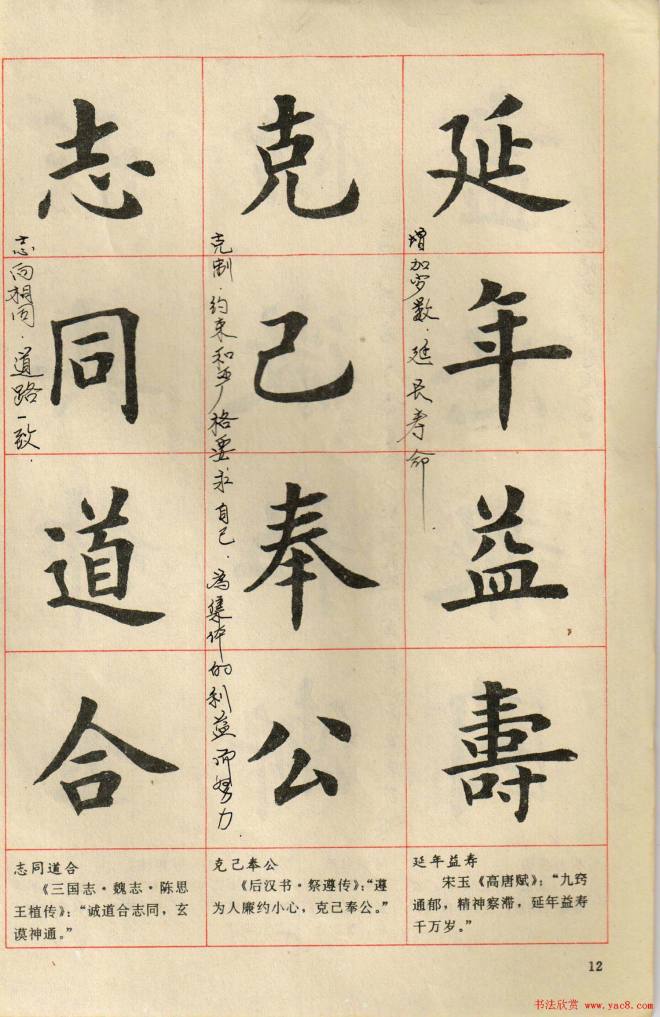 延年益壽
增加岁数．延长寿命
克己奉公
克制．约束和严格要求自己．为集体的利益而努力．
志同道合
志向相同．道路一致．
延年益寿
宋玉《高唐赋》：“九窍
通郁，精神察滞，延年益寿
千万岁。”
克己奉公
《后汉书·祭遵传》：“遵
为人廉约小心，克己奉公。”
志同道合
《三国志·魏志·陈思
王植传》：“诚道合志同，玄
谟神通。”
12
书法欣赏 www.yac8.com